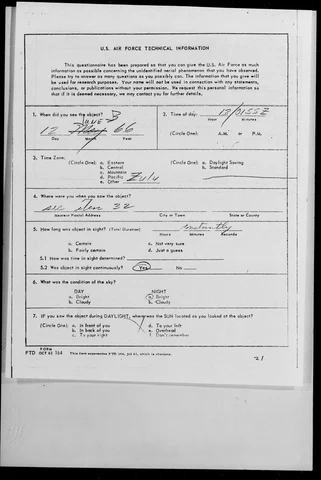 U.S. AIR FORCE TECHNICAL INFORMATION
This questionnaire has been prepared so that you can give the U.S. Air Force as much
information as possible concerning the unidentified aerial phenomenon that you have observed.
Please try to answer as many questions as you possibly can. The information that you give will
be used for research purposes. Your name will not be used in connection with any statements,
conclusions, or publications without your permission. We request this personal information so
that if it is deemed necessary, we may contact you for further details.
1. When did you see the object?
JUNE
12 66
Day Month Year
2. Time of day: 13/0155Z
Hour Minutes
(Circle One): A.M. or P.M.
3. Time Zone:
(Circle One): a. Eastern
b. Central
c. Mountain
d. Pacific
e. Other Zulu
(Circle One): a. Daylight Saving
b. Standard
4. Where were you when you saw the object?
see item 32
Nearest Postal Address City or Town State or County
5. How long was object in sight? (Total Duration) instantly
Hours Minutes Seconds
a. Certain c. Not very sure
b. Fairly certain d. Just a guess
5.1 How was time in sight determined?
5.2 Was object in sight continuously? Yes No
6. What was the condition of the sky?
DAY NIGHT
a. Bright a. Bright
b. Cloudy b. Cloudy
7. IF you saw the object during DAYLIGHT, where was the SUN located as you looked at the object?
(Circle One): a. In front of you d. To your left
b. In back of you e. Overhead
c. To your right f. Don't remember
FORM
FTD OCT 62 164 This form supersedes FTD 164, Jul 61, which is obsolete.
21